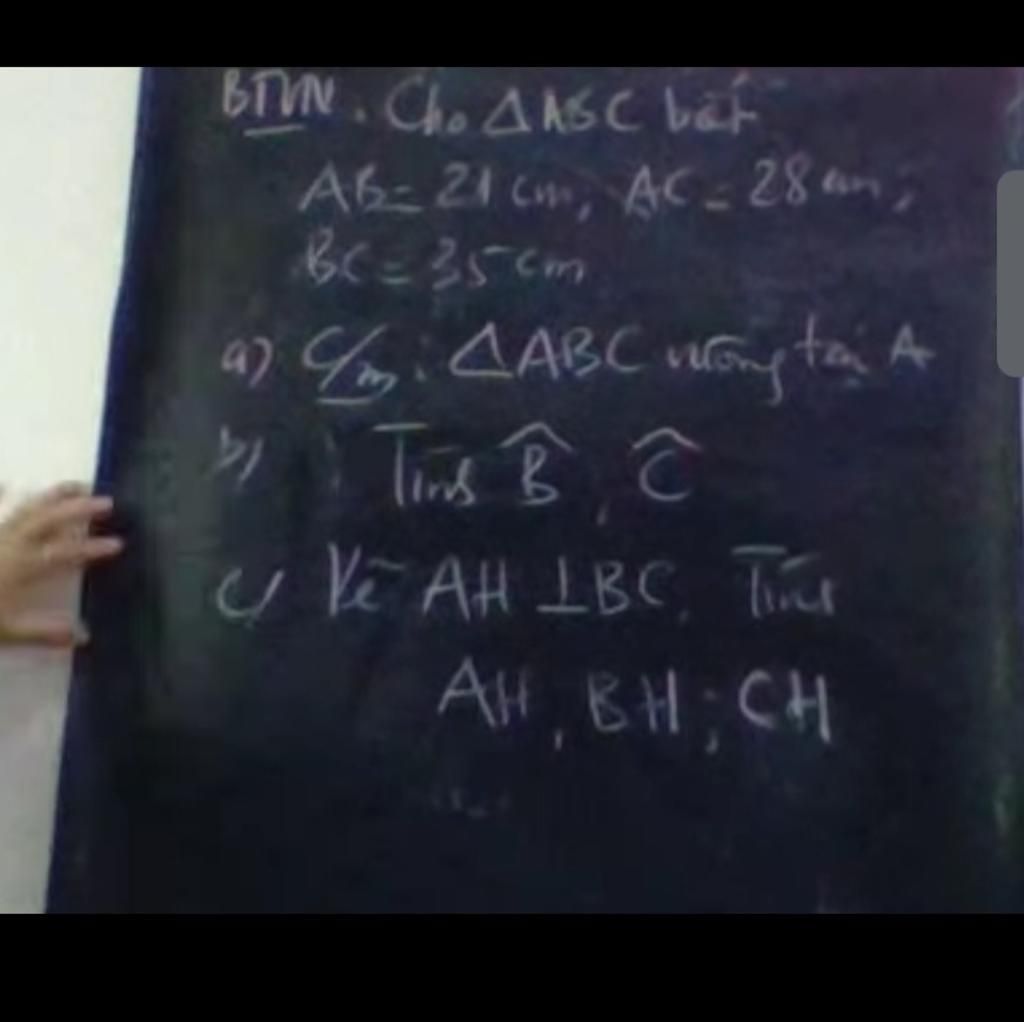 BTVN. Cho ΔABC biết
AB = 21 cm, AC = 28 cm,
BC = 35 cm
a) C/m: ΔABC vuông tại A
b) Tính B̂, Ĉ
c) Vẽ AH ⊥ BC. Tính
AH, BH; CH